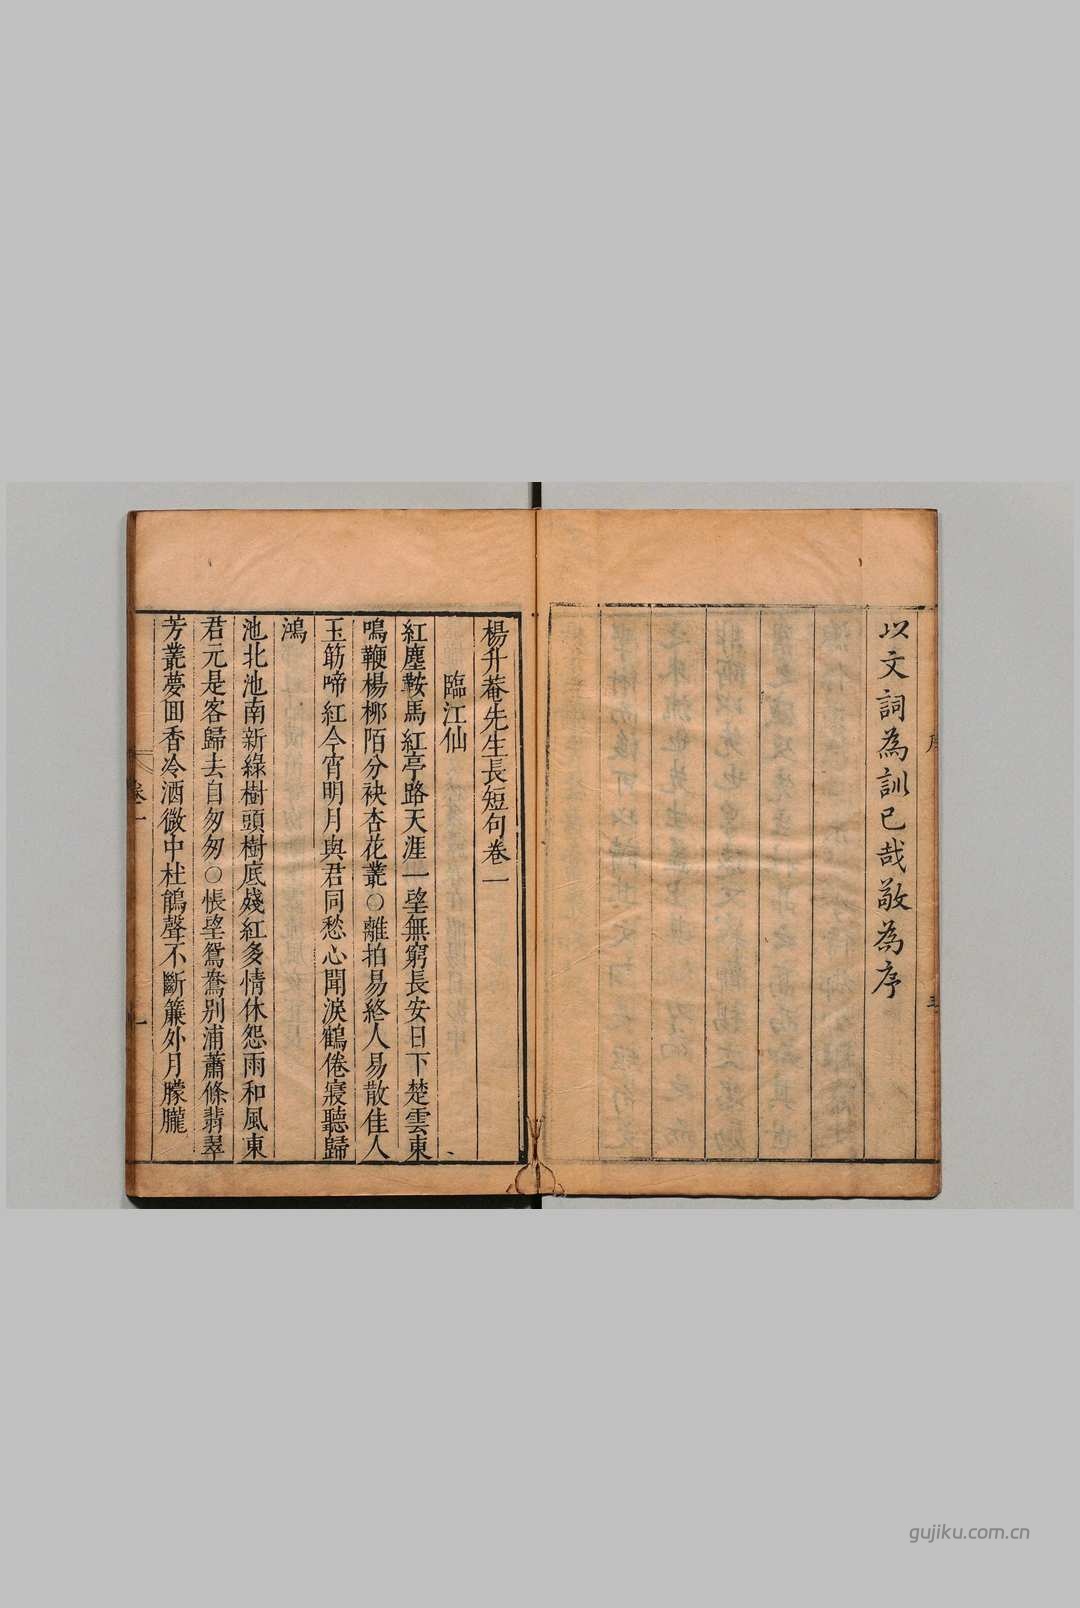 以文詞為訓已哉敬為序
序
五
楊升菴先生長短句卷一
臨江仙
紅塵鞍馬紅亭路天涯一望無窮長安日下楚雲東
鳴鞭楊柳陌分袂杏花叢○離拍易終人易散佳人
玉筯啼紅今宵明月與君同愁心聞淚鶴倦寢聽歸
鴻
池北池南新綠樹頭樹底殘紅多情休怨雨和風東
君元是客歸去自匆匆○悵望鴛鴦別浦蕭條翡翠
芳叢夢回香冷酒微中杜鵑聲不斷簾外月朦朧
卷一
一
gujiku.com.cn